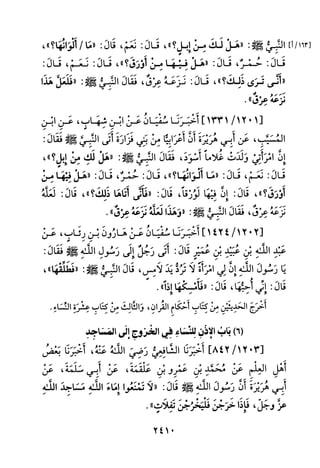 [١١٣/أ] النَّبِيُّ ﷺ: «هَلْ لَكَ مِنْ إِبِلٍ؟»، قَالَ: نَعَمْ، قَالَ: «مَا / أَلْوَانُهَا؟»،
قَالَ: حُمْرٌ، قَالَ: «هَلْ فِيْهَا مِنْ أَوْرَقَ؟»، قَالَ: نَعَمْ، قَالَ:
«أَنَّى تَرَى ذَلِكَ؟»، قَالَ: نَزَعَهُ عِرْقٌ، فَقَالَ النَّبِيُّ ﷺ: «فَلَعَلَّ هَذَا
نَزَعَهُ عِرْقٌ».
[١٣٣١/١٢٠١] أَخْبَرَنَا سُفْيَانُ عَنْ ابْنِ شِهَابٍ، عَنِ ابْنِ
المُسَيِّبِ، عَنْ أَبِي هُرَيْرَةَ أَنَّ أَعْرَابِيًّا مِنْ بَنِي فَزَارَةَ أَتَى النَّبِيَّ ﷺ فَقَالَ:
إِنَّ امْرَأَتِيْ وَلَدَتْ غُلَاماً أَسْوَدَ، فَقَالَ النَّبِيُّ ﷺ: «هَلْ لَكَ مِنْ إِبِلٍ؟»،
قَالَ: نَعَمْ، قَالَ: «مَا أَلْوَانُهَا؟»، قَالَ: حُمْرٌ، قَالَ: «هَلْ فِيْهَا مِنْ
أَوْرَقَ؟»، قَالَ: إِنَّ فِيْهَا لَوُرْقاً، قَالَ: «فَأَنَّى أَتَاهَا ذَلِكَ؟»، قَالَ: لَعَلَّهُ
نَزَعَهُ عِرْقٌ، فَقَالَ النَّبِيُّ ﷺ: «وَهَذَا لَعَلَّهُ نَزَعَهُ عِرْقٌ».
[١٤٢٤/١٢٠٢] أَخْبَرَنَا سُفْيَانُ عَنْ هَارُونَ بْنِ رِئَابٍ، عَنْ
عَبْدِ اللَّهِ بْنِ عُبَيْدِ بْنِ عُمَيْرٍ قَالَ: أَتَى رَجُلٌ إِلَى رَسُولِ اللَّهِ ﷺ فَقَالَ:
يَا رَسُولَ اللَّهِ إِنَّ لِي امْرَأَةً لَا تَرُدُّ يَدَ لَامِسٍ، قَالَ النَّبِيُّ ﷺ: «فَطَلِّقْهَا»،
قَالَ: إِنِّي أُحِبُّهَا، قَالَ: «فَأَمْسِكْهَا إِذاً».
أَخْرَجَ الْحَدِيْثَيْنِ مِنْ كِتَابِ أَحْكَامِ القُرْآنِ، وَالثَّالِثَ مِنْ كِتَابِ عِشْرَةِ النِّسَاءِ.
(٦) بَابُ الإِذْنِ لِلنِّسَاءِ فِي الخُرُوجِ إِلَى المَسَاجِدِ
[٨٤٢/١٢٠٣] أَخْبَرَنَا الشَّافِعِيُّ رَضِيَ اللَّهُ عَنْهُ، أَخْبَرَنَا بَعْضُ
أَهْلِ العِلْمِ عَنْ مُحَمَّدِ بْنِ عَمْرِو بْنِ عَلْقَمَةَ، عَنْ أَبِي سَلَمَةَ، عَنْ
أَبِي هُرَيْرَةَ أَنَّ رَسُولَ اللَّهِ ﷺ قَالَ: «لَا تَمْنَعُوا إِمَاءَ اللَّهِ مَسَاجِدَ اللَّهِ
عزَّ وجَلَّ، فَإِذَا خَرَجْنَ فَلْيَخْرُجْنَ تَفِلَاتٍ».
٢٤١٠